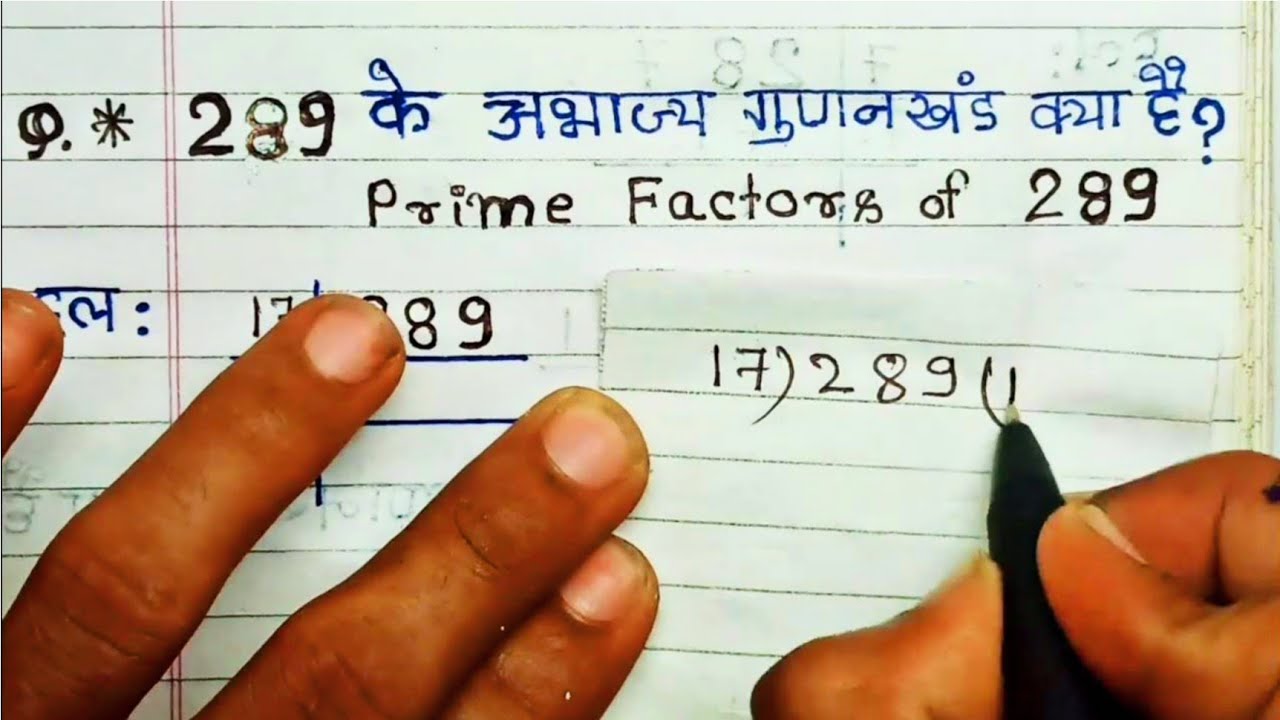 Q.* 289 के अभाज्य गुणनखंड क्या है?
Prime Factors of 289
हल: 17 289
17)289(1